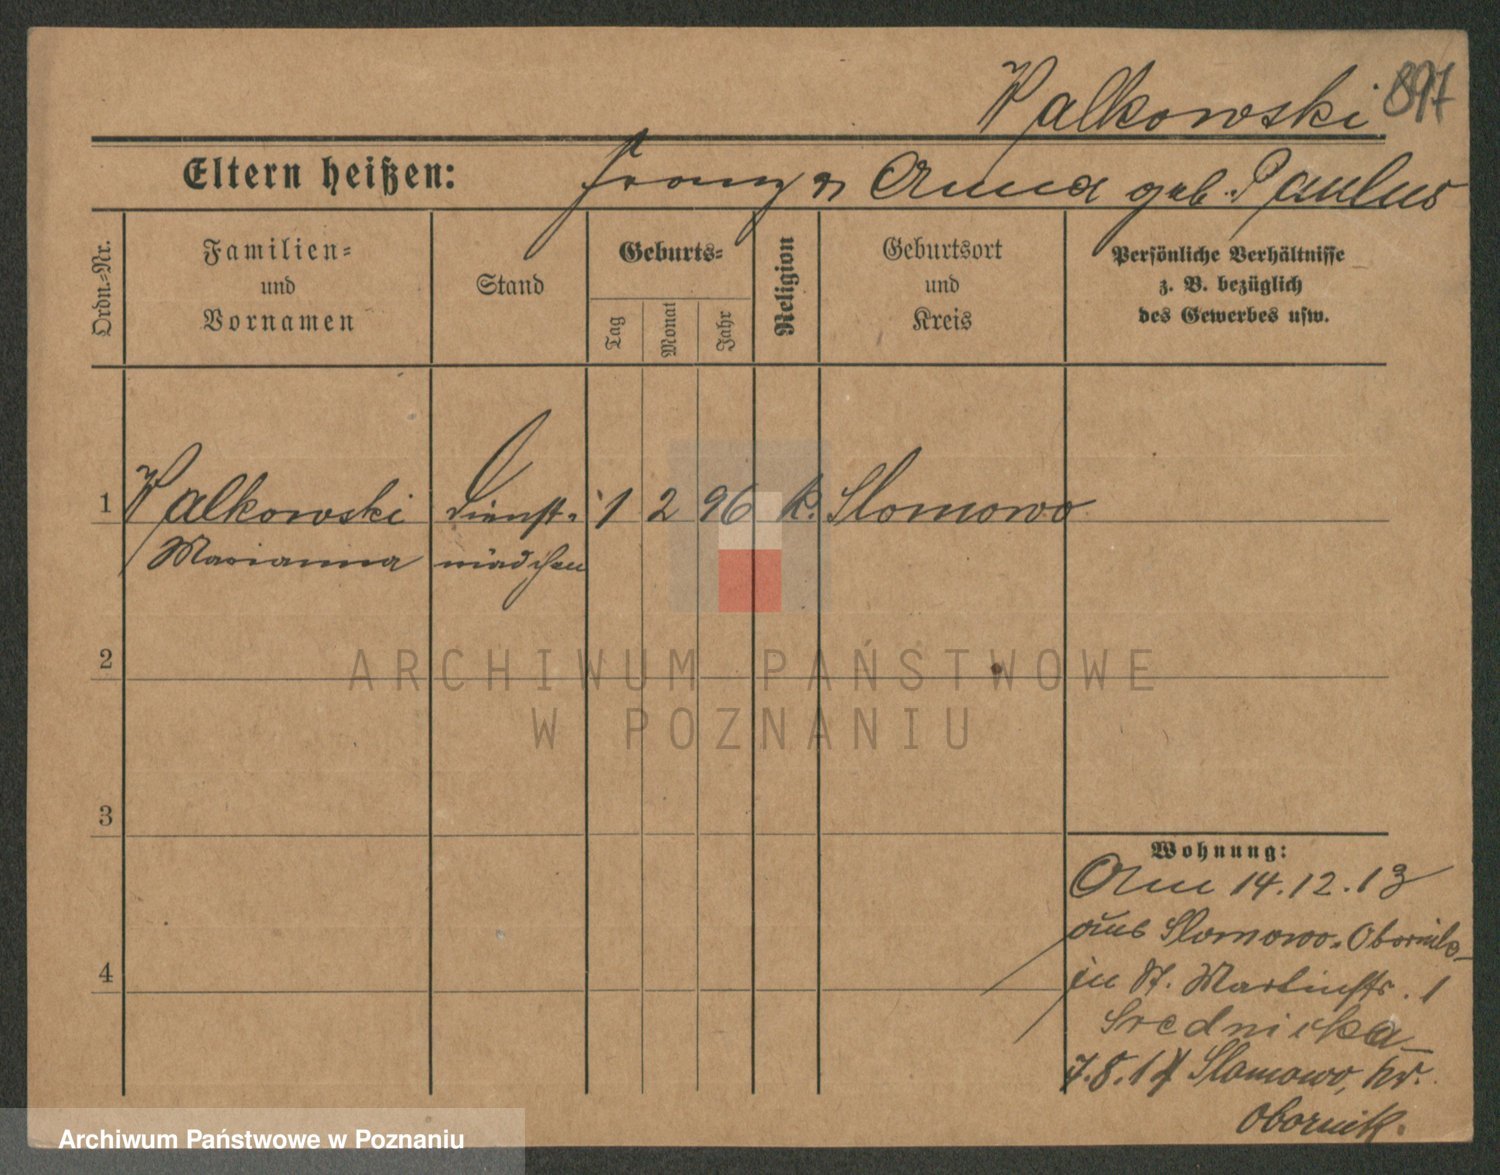 Walkowski 897
Eltern heißen: Franz u Anna geb. Paulus
Ordn.-Nr.
Familien-
und
Vornamen
Stand
Geburts-
Tag
Monat
Jahr
Religion
Geburtsort
und
Kreis
Persönliche Verhältnisse
z. B. bezüglich
des Gewerbes usw.
1 Walkowski Dienst- 1 2 96 k. Slomowo
Marianna mädchen
2
3
4
Wohnung:
Am 14.12.13
aus Slomowo-Obornik
in St. Martinstr. 1
Srednicka
7.8.14 Slomowo, Kr.
Obornik.
ARCHIWUM PAŃSTWOWE
W POZNANIU
Archiwum Państwowe w Poznaniu